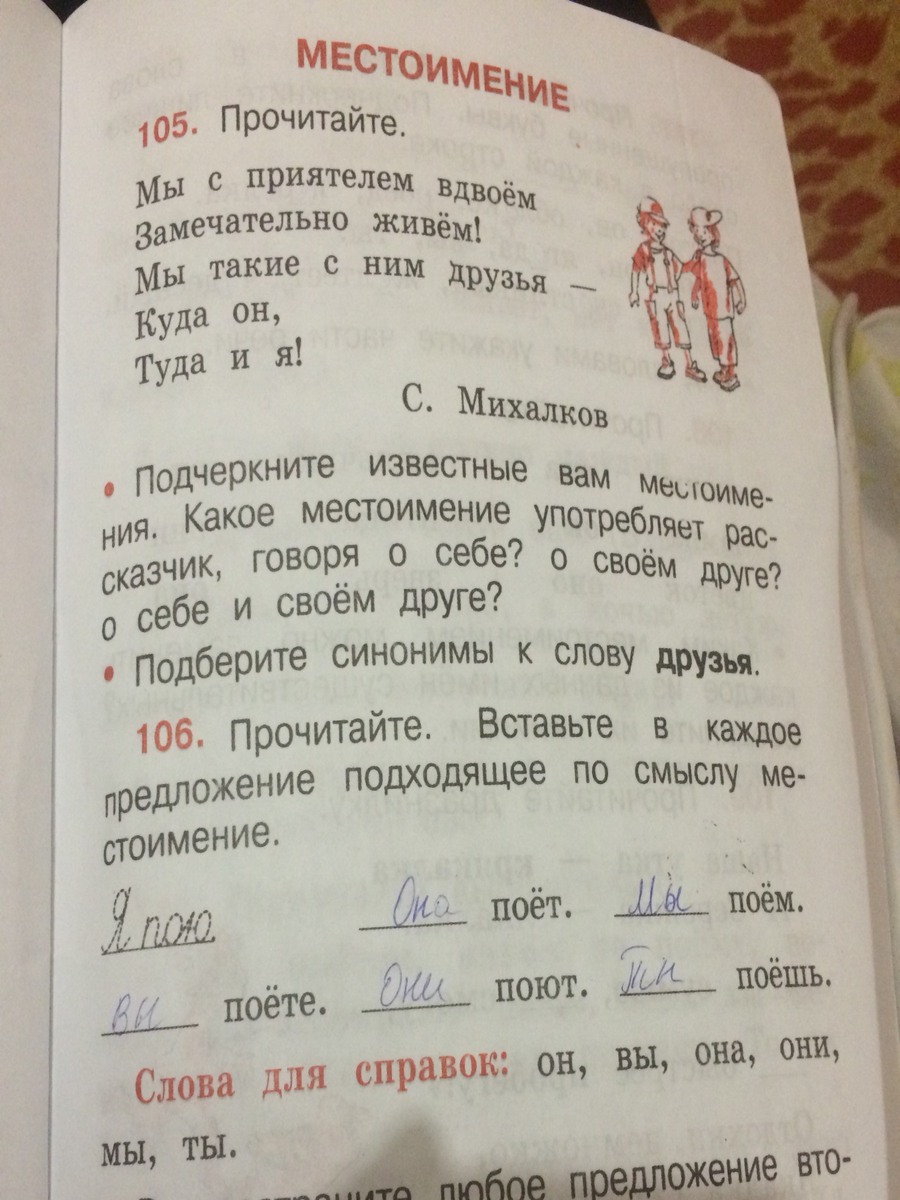 МЕСТОИМЕНИЕ
105. Прочитайте.
Мы с приятелем вдвоём
Замечательно живём!
Мы такие с ним друзья —
Куда он,
Туда и я!
С. Михалков
• Подчеркните известные вам местоиме-
ния. Какое местоимение употребляет рас-
сказчик, говоря о себе? о своём друге?
о себе и своём друге?
• Подберите синонимы к слову друзья.
106. Прочитайте. Вставьте в каждое
предложение подходящее по смыслу ме-
стоимение.
Я пою. Она поёт. Мы поём.
вы поёте. Они поют. ты поёшь.
Слова для справок: он, вы, она, они,
мы, ты.
любое предложение вто-